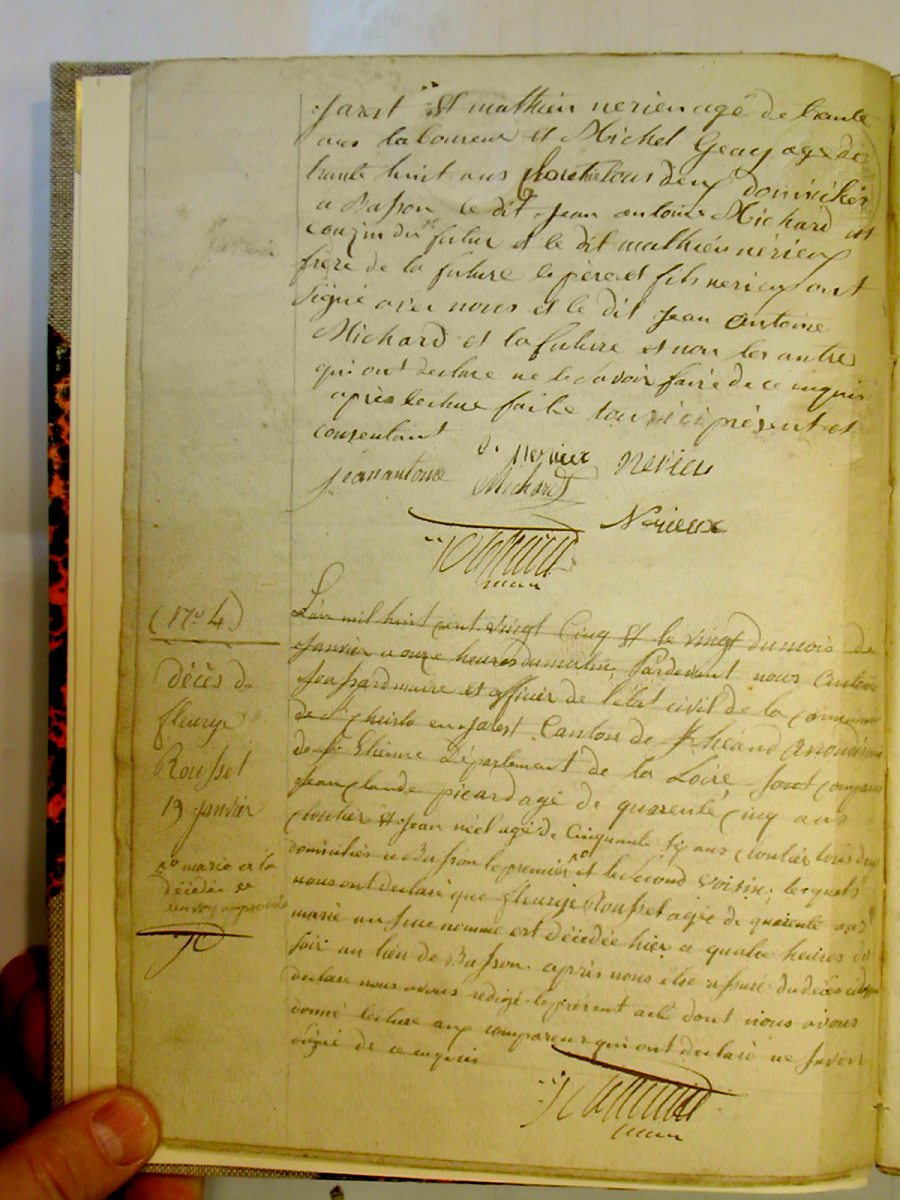 jarest et mathieu nerieu agé de trante
ans laboureur et Michel Geay agé de
trante huit ans tous deux domiciliés
a Basson le dit jean antoine Michard est
couzin du futur et le dit mathieu nerieux
frère de la future le père et fils nerieux ont
signé avec nous et le dit jean antoine
Michard et la future et non les autre
qui ont declaré ne le savoir faire de ce enquis
après lecture faite tous ici présent et
consentant
jean antoine Michard nerieu
Nerieux
(N.o 4)
décès de
fleurye
Rousset
19 janvier
marié et la
décédée et
renvoy approuvé
L'an mil huit cent vingt cinq et le vingt du mois de
janvier a onze heures du matin, Pardevant nous Antoine
maire et officier de l'Etat civil de la commune
de en jarest Canton de St héand arrondisse
de St Etienne département de la Loire, sont comparus
jean claude picard agé de quarente cinq ans
cloutier et jean néel agé de cinquante six ans cloutier tous deux
domiciliés a Basson le premier et le second voisin; lesquels
nous ont declaré que fleurye Rousset agée de quarente ans
marié au nommé est décédée hier a quatre heures du
soir au lieu de Basson. après nous être assuré du décès
declaré nous avons redigé le présent acte dont nous avons
donné lecture aux comparans qui ont declaré ne savoir
signé de ce enquis